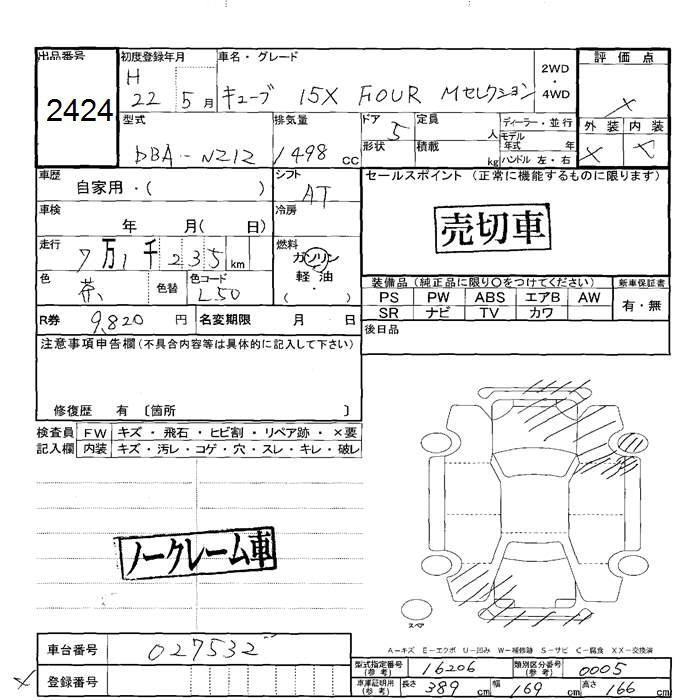 出品番号
2424
初度登録年月
H 22 5月
車名・グレード
キューブ 15X FOUR Mセレクション
2WD・4WD
評価点
×
型式
DBA-NZ12
排気量
1498 cc
ドア 5
形状
定員 人
積載 kg
ディーラー・並行
モデル年式 年
ハンドル 左・右
外装 内装
× ×
車歴
自家用・( )
シフト
AT
セールスポイント (正常に機能するものに限ります)
売切車
車検
年 月( 日)
冷房
走行
7万1千235km
燃料
ガソリン
軽油
( ・ )
色
茶
色替
色コード
L50
装備品(純正品に限り○をつけてください)
新車保証書
PS PW ABS エアB AW
SR ナビ TV カワ
有・無
R券 9,820 円
名変期限 月 日
後日品
注意事項申告欄(不具合内容等は具体的に記入して下さい)
修復歴 有 〔箇所 〕
検査員 FW キズ・飛石・ヒビ割・リペア跡・×要
記入欄 内装 キズ・汚レ・コゲ・穴・スレ・キレ・破レ
ノークレーム車
スペア
A-キズ E-エクボ U-凹み W-補修跡 S-サビ C-腐食 XX-交換済
車台番号 027532
型式指定番号(参考) 16206
類別区分番号(参考) 0005
× 登録番号
車庫証明用(参考) 長さ 389 cm 幅 169 cm 高さ 166 cm